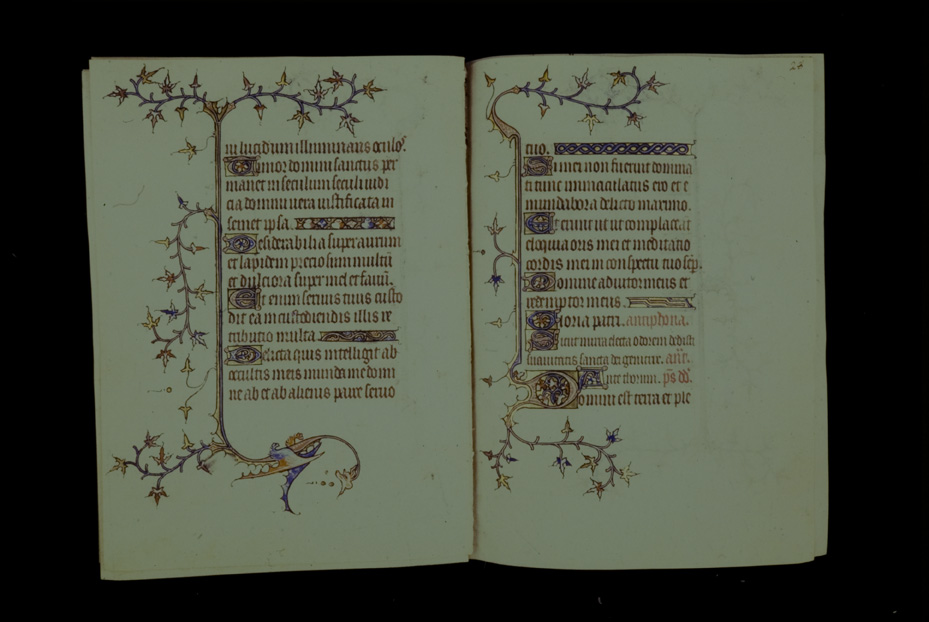 ni lucidum illuminans oculos.
Timor domini sanctus per
manet in seculum seculi iudi
cia domini vera iustificata in
semet ipsa.
Desiderabilia super aurum
et lapidem preciosum multū
et dulciora super mel et fauū.
Et enim servus tuus custo
dit ea in custodiendis illis re
tributio multa.
Delicta quis intelligit ab
occultis meis munda me domi
ne ab et ab alienis parce servo
24
tuo.
Si mei non fuerint domina
ti tunc immaculatus ero et e
mundabor a delicto maximo.
Et erunt ut complaceat
eloquia oris mei et meditatio
cordis mei in conspectu tuo sēp.
Domine adiutor meus et
redemptor meus.
Gloria patri. antiphona.
Sicut mirra electa odorem dedisti
suavitatis sancta dei genitrix. añ.
Ante thorum. ps. dd.
Domini est terra et ple